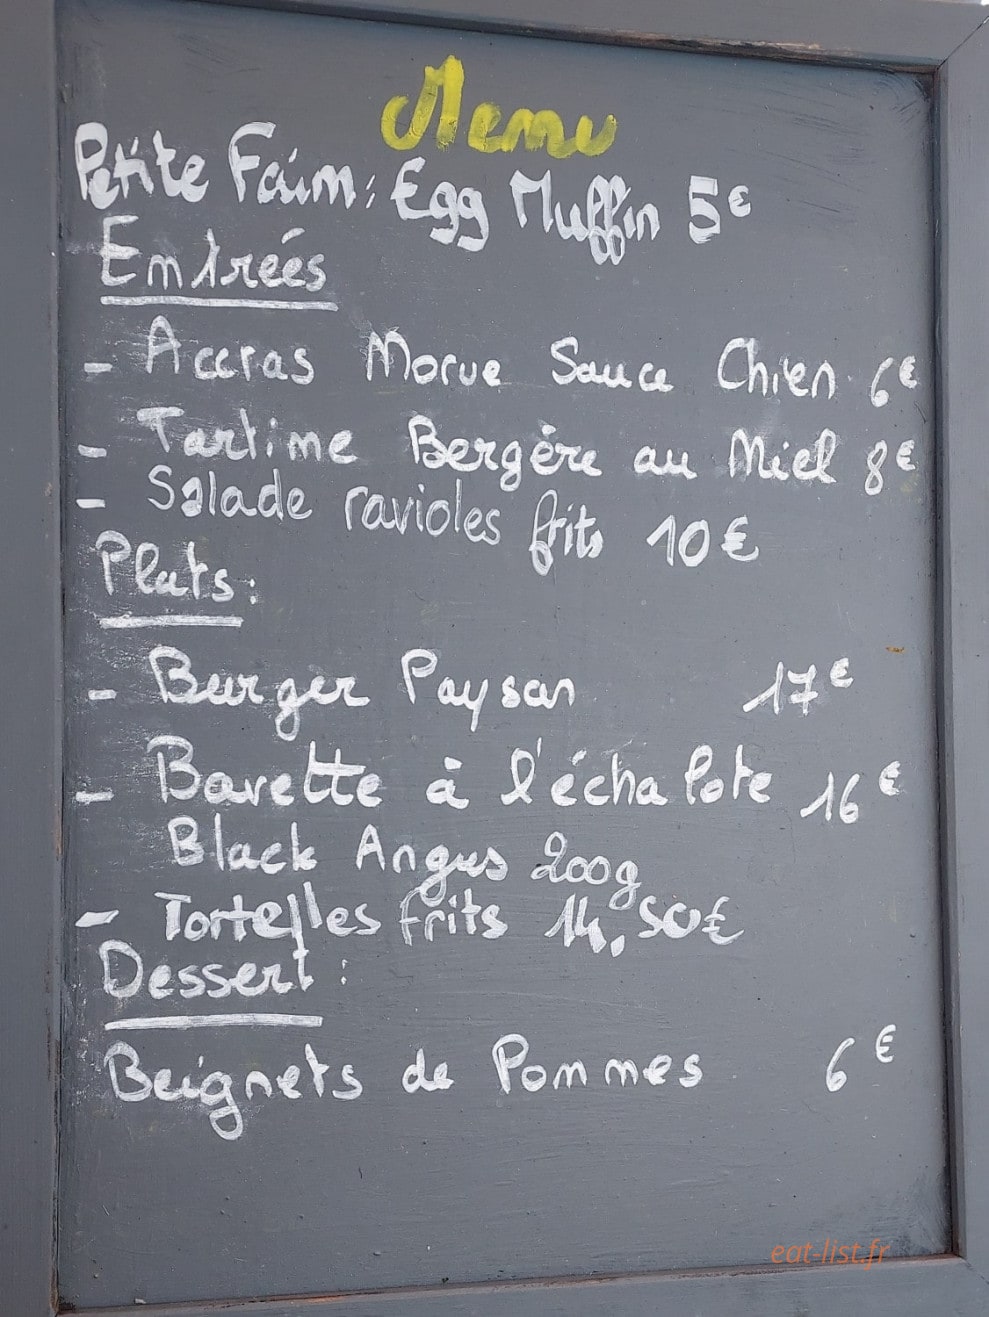 Menu
Petite Faim : Egg Muffin 5€
Entrées
- Accras Morue Sauce Chien 6€
- Tartine Bergère au Miel 8€
- Salade ravioles frits 10€
Plats :
- Burger Paysan 17€
- Bavette à l'échalote 16€
Black Angus 200g
- Tortelles frits 14,50€
Dessert :
Beignets de Pommes 6€
eat-list.fr